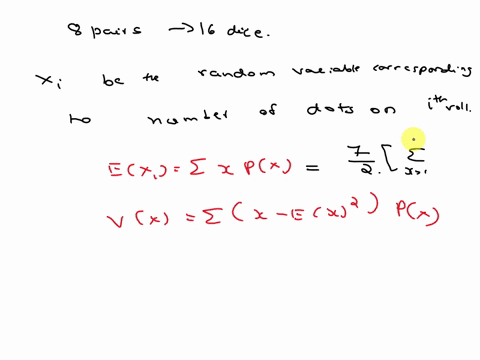 8 pairs → 16 dice.
Xi be the random variable corresponding
to number of dots on ith roll.
E(X1) = Σ x P(x) = 7/2 [ Σ x=1
V(x) = Σ (x - E(x)²) P(x)